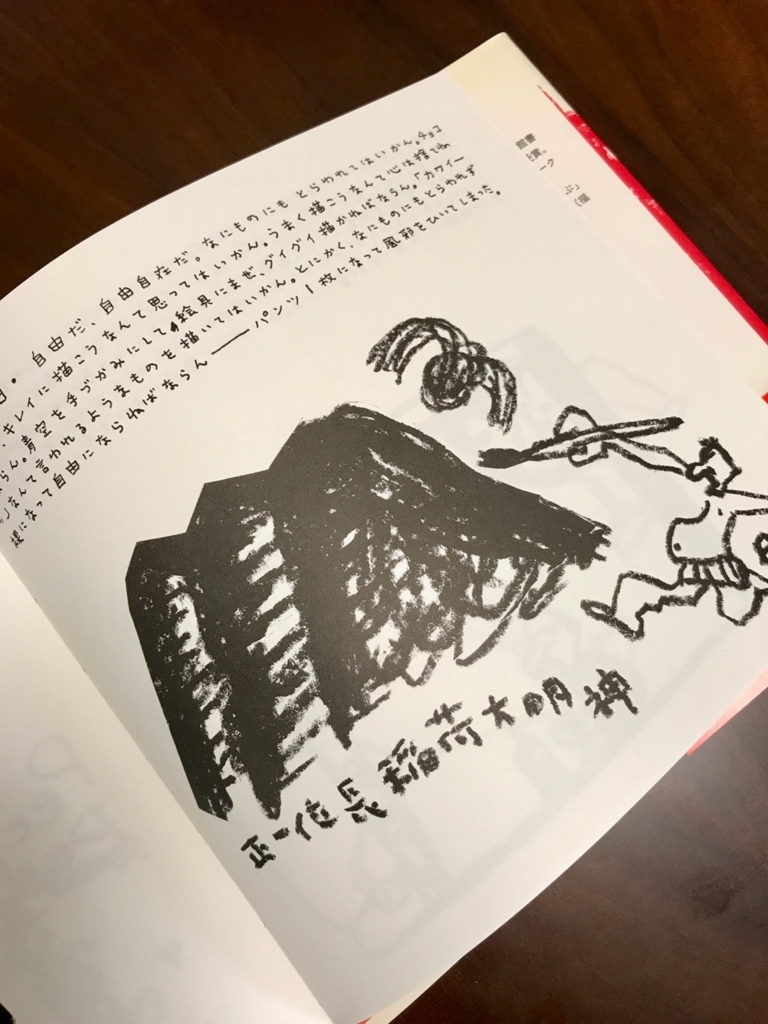 自由だ、自由自在だ。なにものにも とらわれてはいかん。チョコ
、キレイに描こうなんて思ってはいかん。うまく描こうなんて心は捨てね
らん。青空を手づかみにして、絵具にまぜ、グイグイ描かねばならん。「カワイー
」なんて言われるようなものを描いてはいかん。とにかく、なにものにもとらわれず
裸になって自由にならねばならん──パンツ一枚になって風邪をひいてしまった。
正一位 稲荷大明神